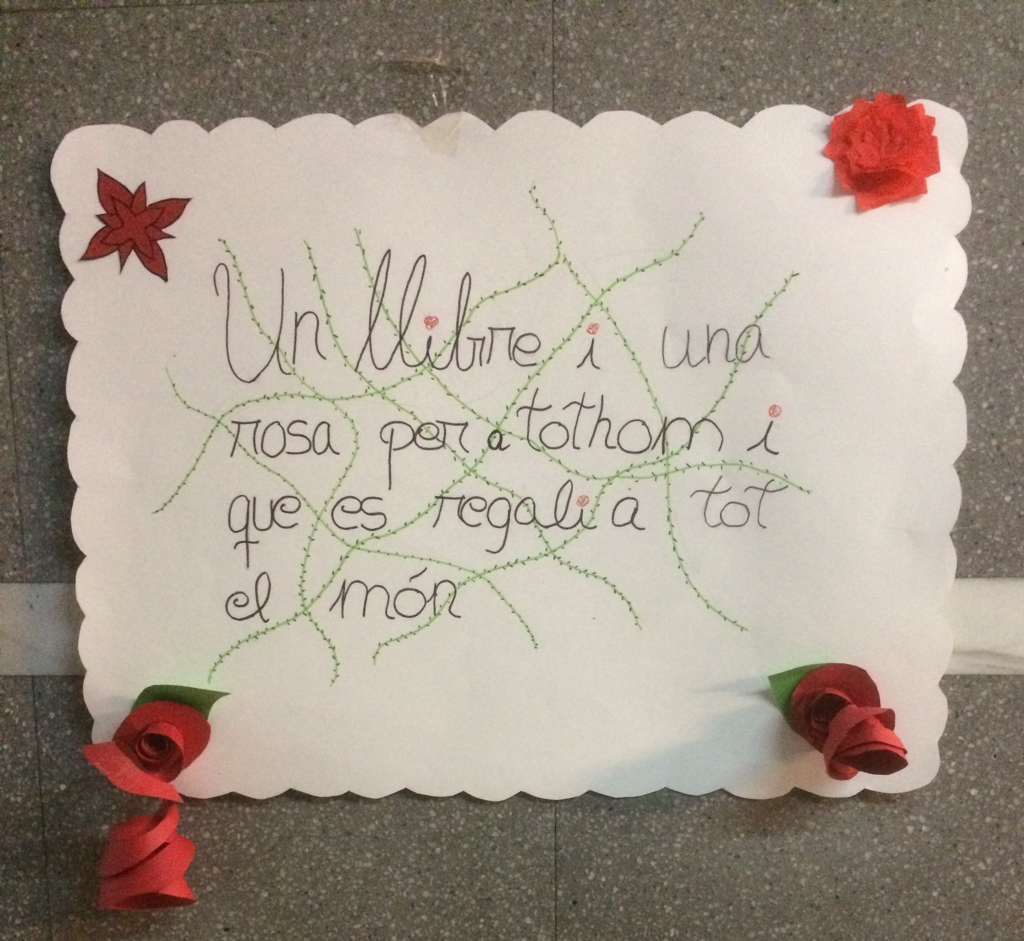 Un llibre i una
rosa per a tothom i
que es regali a tot
el món